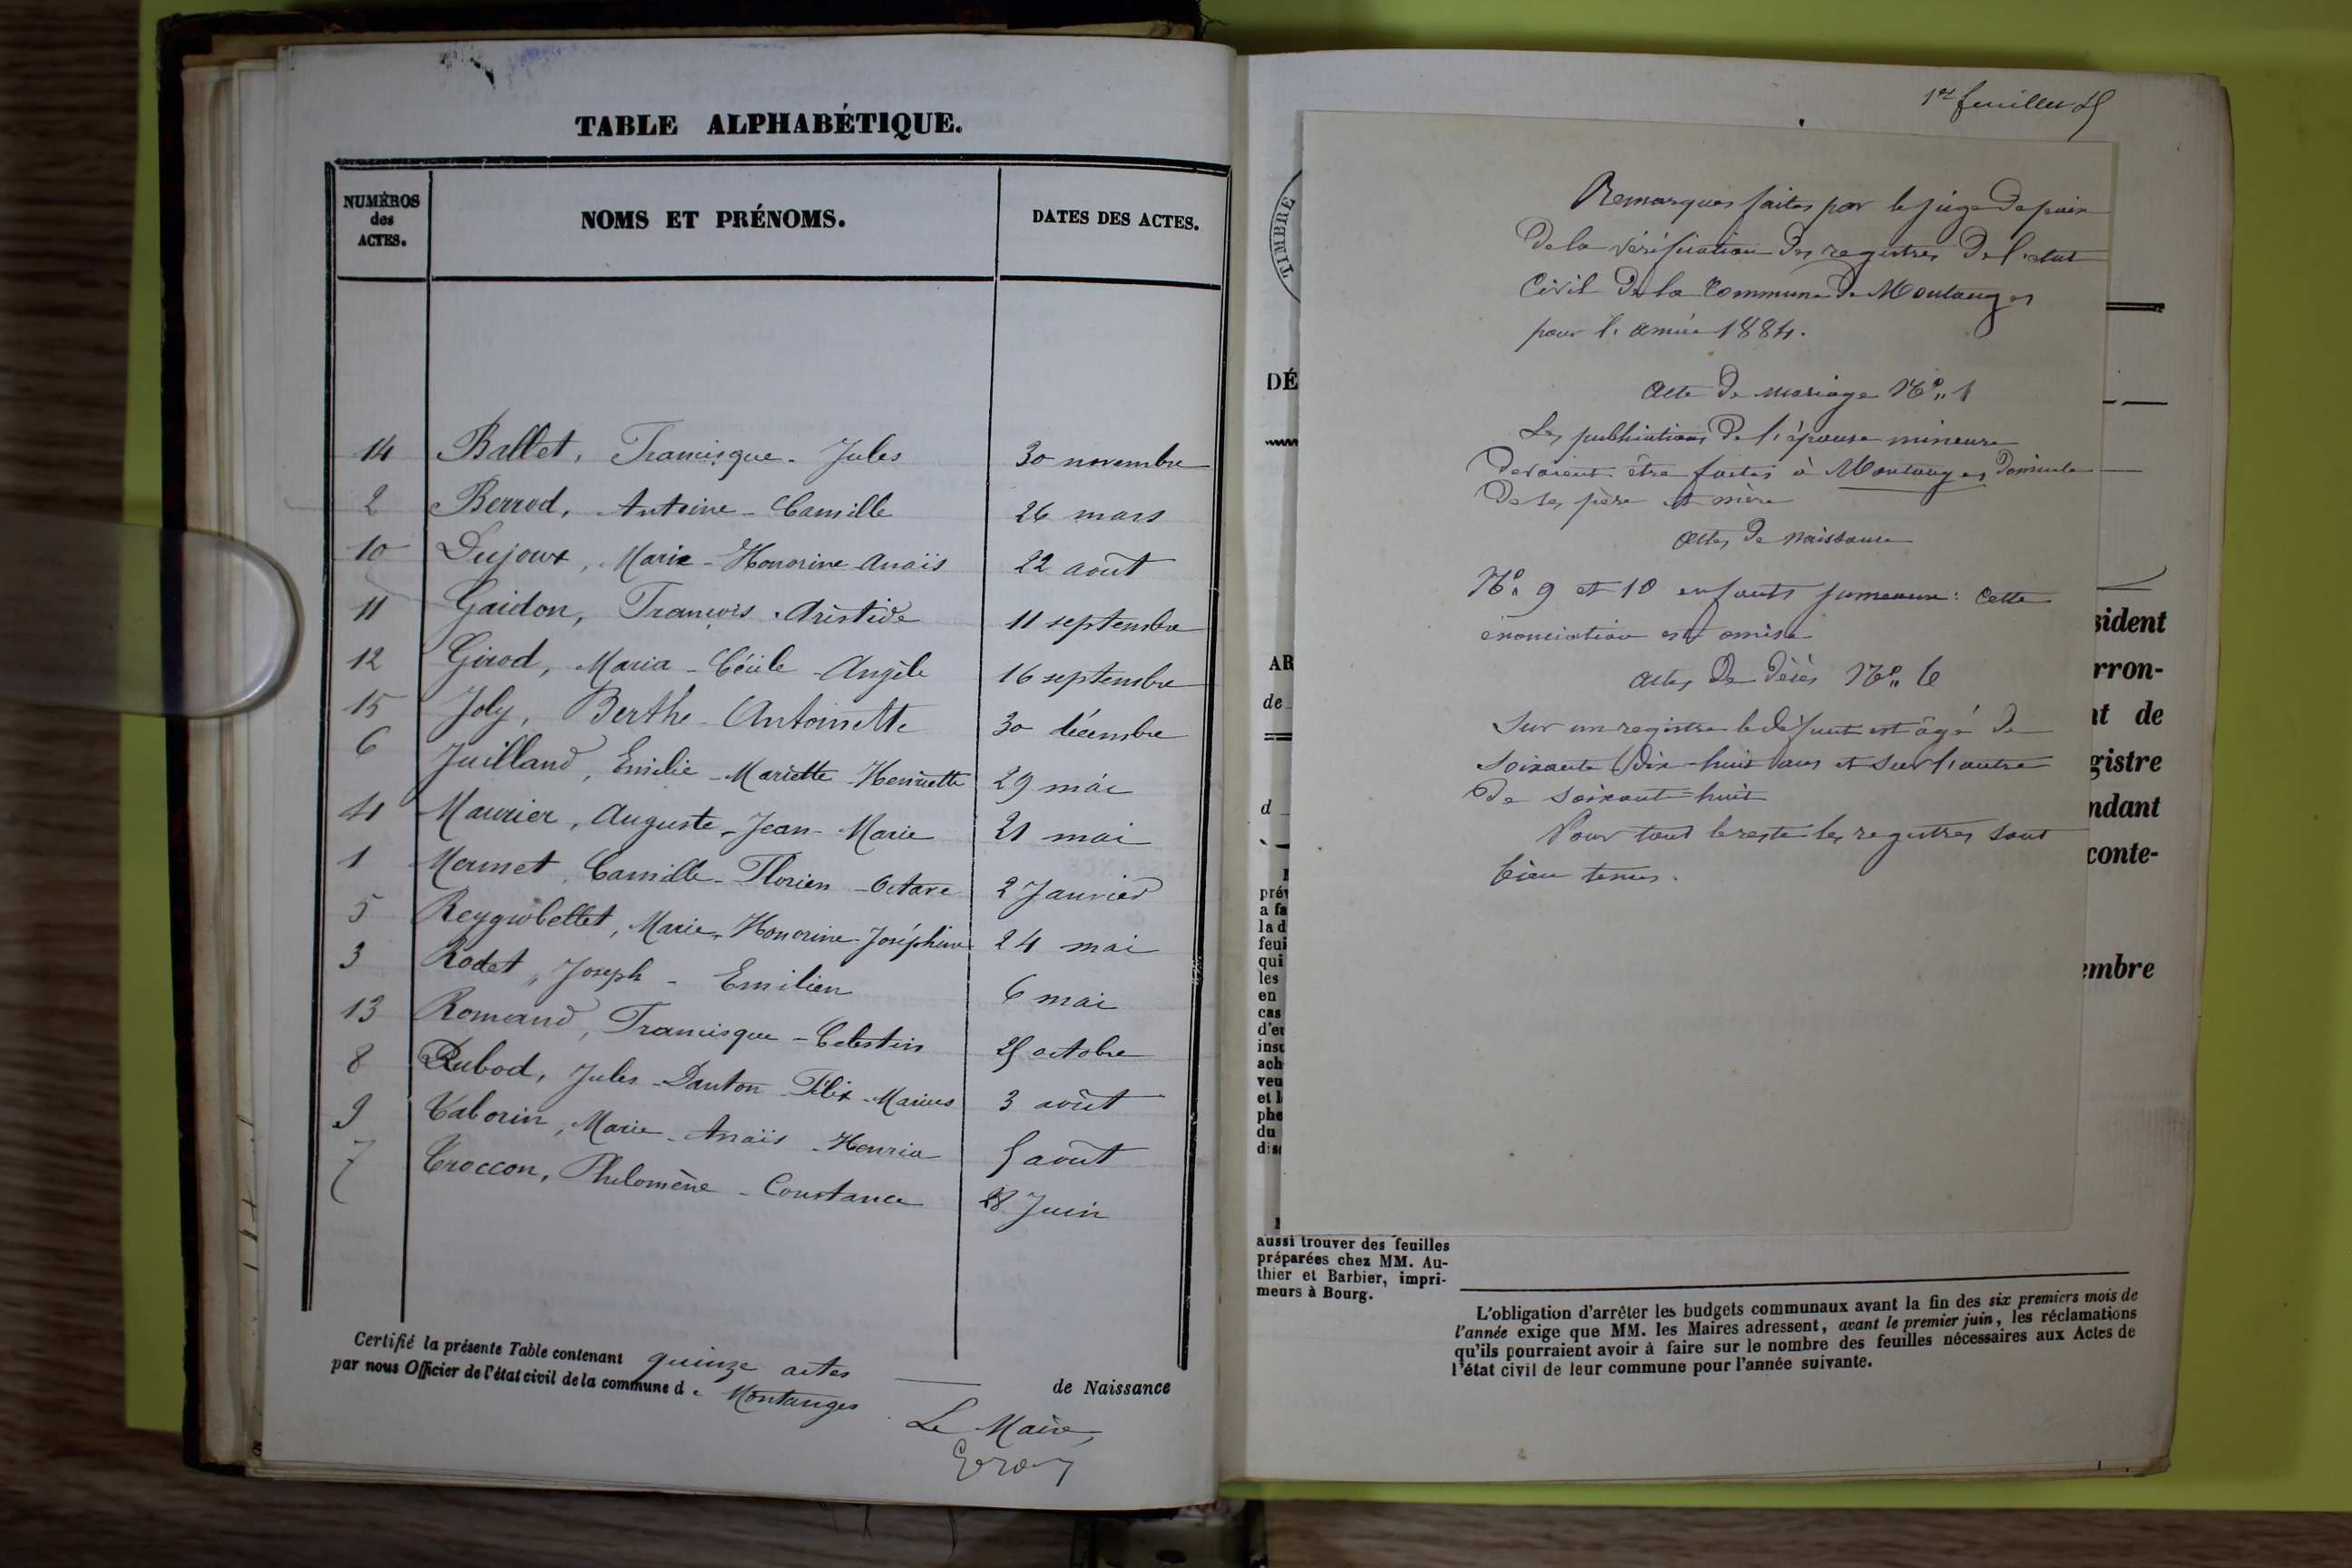 TABLE ALPHABÉTIQUE.
NUMÉROS
des
ACTES.
NOMS ET PRÉNOMS.
DATES DES ACTES.
14 Ballet, Francisque - Jules 30 novembre
2 Berrod, Antoine - Camille 26 mars
10 Dujoux, Marie - Honorine Anaïs 22 août
11 Gaidon, François - Aristide 11 septembre
12 Girod, Maria - Cécile - Angèle 16 septembre
15 Joly, Berthe - Antoinette 30 décembre
6 Juilland, Emilie - Mariette Henriette 29 mai
4 Maurier, Auguste - Jean - Marie 21 mai
1 Mermet, Camille - Florien - Octave 2 Janvier
5 Reygrobellet, Marie - Honorine - Joséphine 24 mai
3 Rodet, Joseph - Emilien 6 mai
13 Romand, Francisque - Celestin 25 octobre
8 Rubod, Jules - Danton - Félix - Marius 3 août
9 Taborin, Marie - Anaïs - Henria 5 août
7 Troccon, Philomène - Constance 28 Juin
Certifié la présente Table contenant quinze actes de Naissance
par nous Officier de l'état civil de la commune de Montanges
Le Maire,
1er feuillet
TIMBRE
Remarques faites par le juge de paix
de la vérification des registres de l'état
Civil de la Commune de Montanges
pour l'année 1884.
acte de mariage No 1
Les publications de l'épouse mineure
devaient être faites à Montanges domicile
de ses père et mère
actes de naissance
No 9 et 10 enfants jumeaux : cette
énonciation est omise
actes de décès No 6
Sur un registre le défunt est âgé de
soixante dix-huit ans et sur l'autre
de soixante-huit
Pour tout le reste les registres sont
bien tenus.
DÉ
AR
de
d
prév
a fa
la d
feui
qui
les
en
cas
d'en
inst
ach
veu
et l
phe
du
dis
sident
rron-
nt de
gistre
ndant
conte-
embre
aussi trouver des feuilles
préparées chez MM. Au-
thier et Barbier, impri-
meurs à Bourg.
L'obligation d'arrêter les budgets communaux avant la fin des six premiers mois de
l'année exige que MM. les Maires adressent, avant le premier juin, les réclamations
qu'ils pourraient avoir à faire sur le nombre des feuilles nécessaires aux Actes de
l'état civil de leur commune pour l'année suivante.